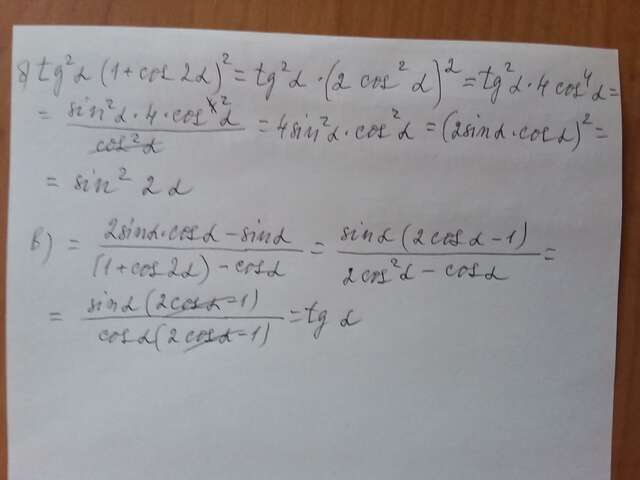 б) tg²α (1+cos 2α)² = tg²α · (2 cos²α)² = tg²α · 4 cos⁴α =
= sin²α · 4 · cos⁴²α / cos²α = 4sin²α · cos²α = (2sinα · cosα)² =
= sin² 2α
в) = 2sinα · cosα − sinα / (1+cos2α) − cosα = sinα (2cosα − 1) / 2cos²α − cosα =
= sinα (2cosα − 1) / cosα (2cosα − 1) = tg α